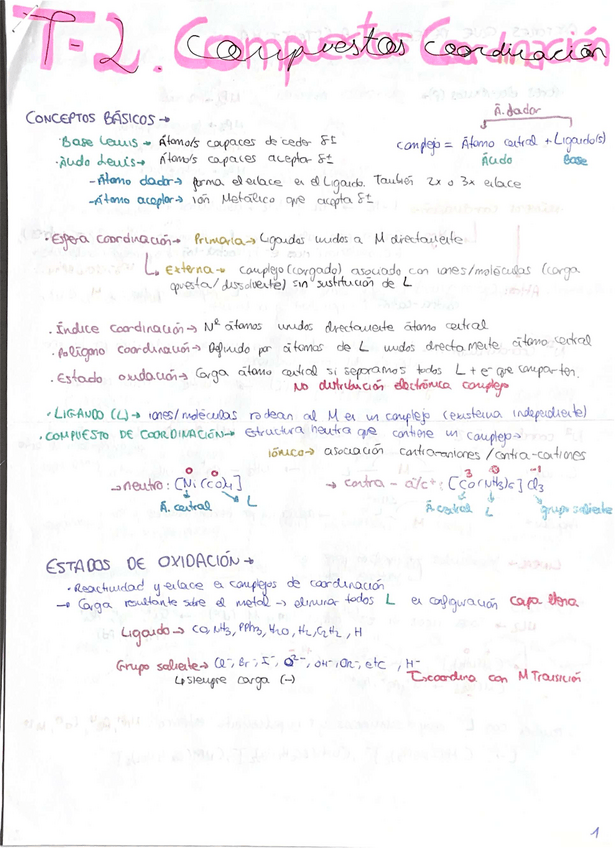 T-2. Compuestos Coordinación
CONCEPTOS BÁSICOS →
Á. dador
· Base Lewis → Átomo/s capaces de ceder
complejo = Átomo central + Ligando(s)
· Ácido Lewis → Átomo/s capaces acepta
Ácido Base
- Átomo dador → forma el enlace en el Ligando. También 2x o 3x enlace
- Átomo aceptor → ión Metálico que acepta
· Esfera coordinación → Primaria → Ligandos unidos a M directamente
Externa → complejo (cargado) asociado con iones/moléculas (carga
opuesta/disolvente) sin sustitución de L
· Índice coordinación → Nº átomos unidos directamente átomo central
· Polígono coordinación → Definido por átomos de L unidos directamente átomo central
· Estado oxidación → Carga átomo central si separamos todos L + e⁻ que comparten.
No distribución electrónica complejo
· LIGANDO (L) → iones/moléculas rodean al M en un complejo (existencia independiente)
· COMPUESTO DE COORDINACIÓN → Estructura neutra que contiene un complejo
iónico → asociación contra-aniones/contra-cationes
0 0
→ neutro: [Ni(CO)₄]
3 0 -1
→ contra - a⁻/c⁺: [Co(NH₃)₆]Cl₃
Á. central L
Á. central L grupo saliente
ESTADOS DE OXIDACIÓN →
· Reactividad y enlace en complejos de coordinación
→ Carga resultante sobre el metal → elimina todos L en configuración capa llena
Ligando → CO, NH₃, PPh₃, H₂O, H₂, C₂H₂, H
Grupo saliente → Cl⁻, Br⁻, I⁻, O²⁻, OH⁻, etc , H⁻
↳ siempre carga (-)
coordina con M Transición
1